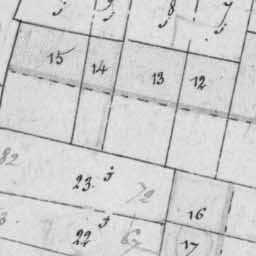 8
15 14 13 12
82
23 72
16
22 67
17